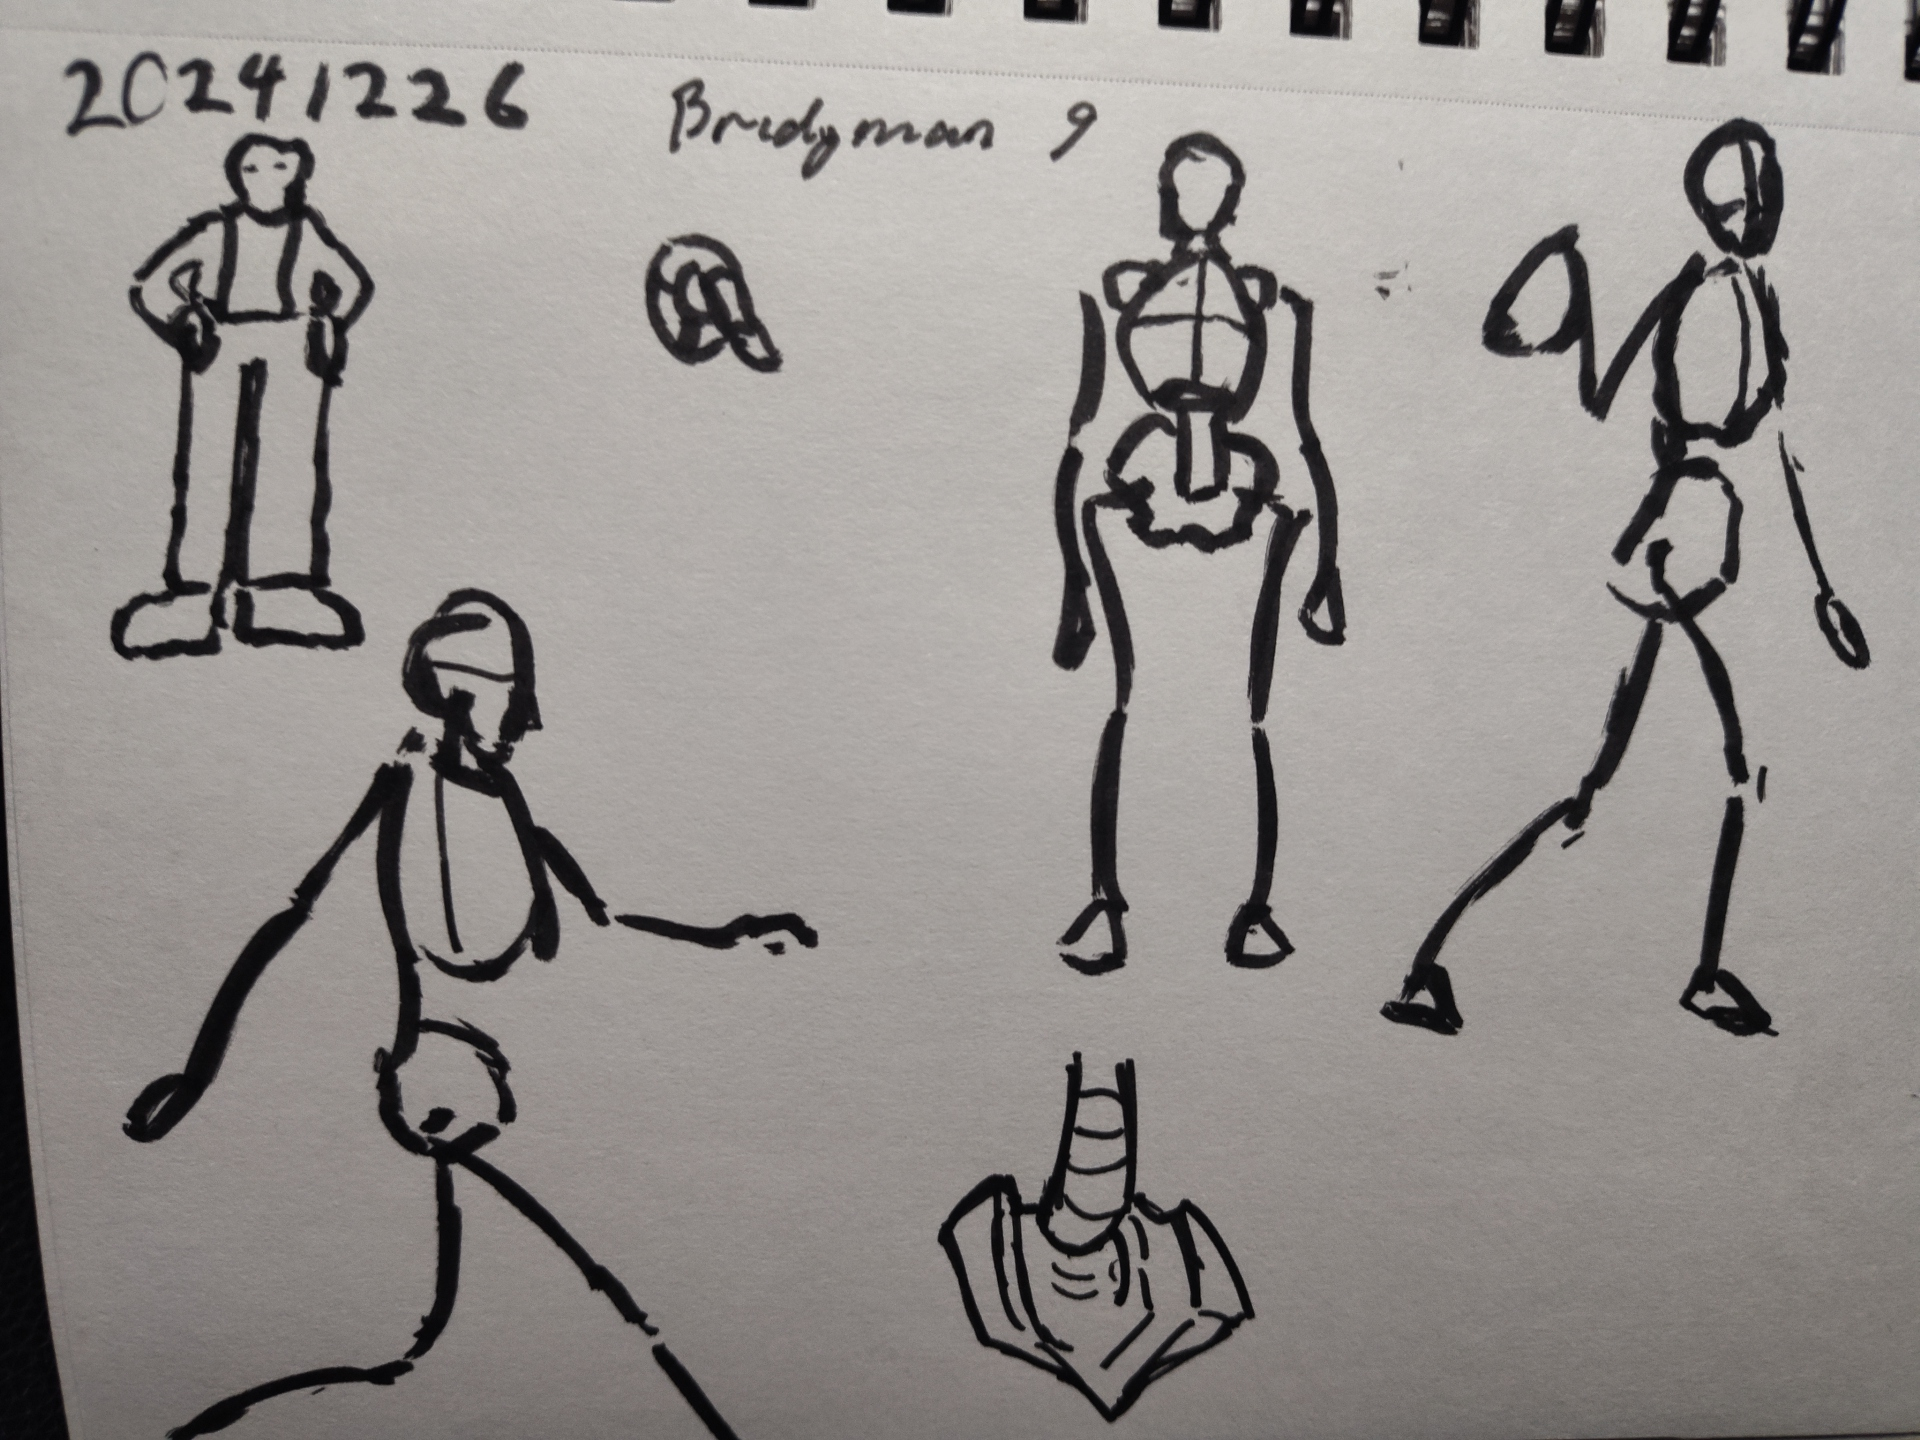 20241226
Bridgman 9